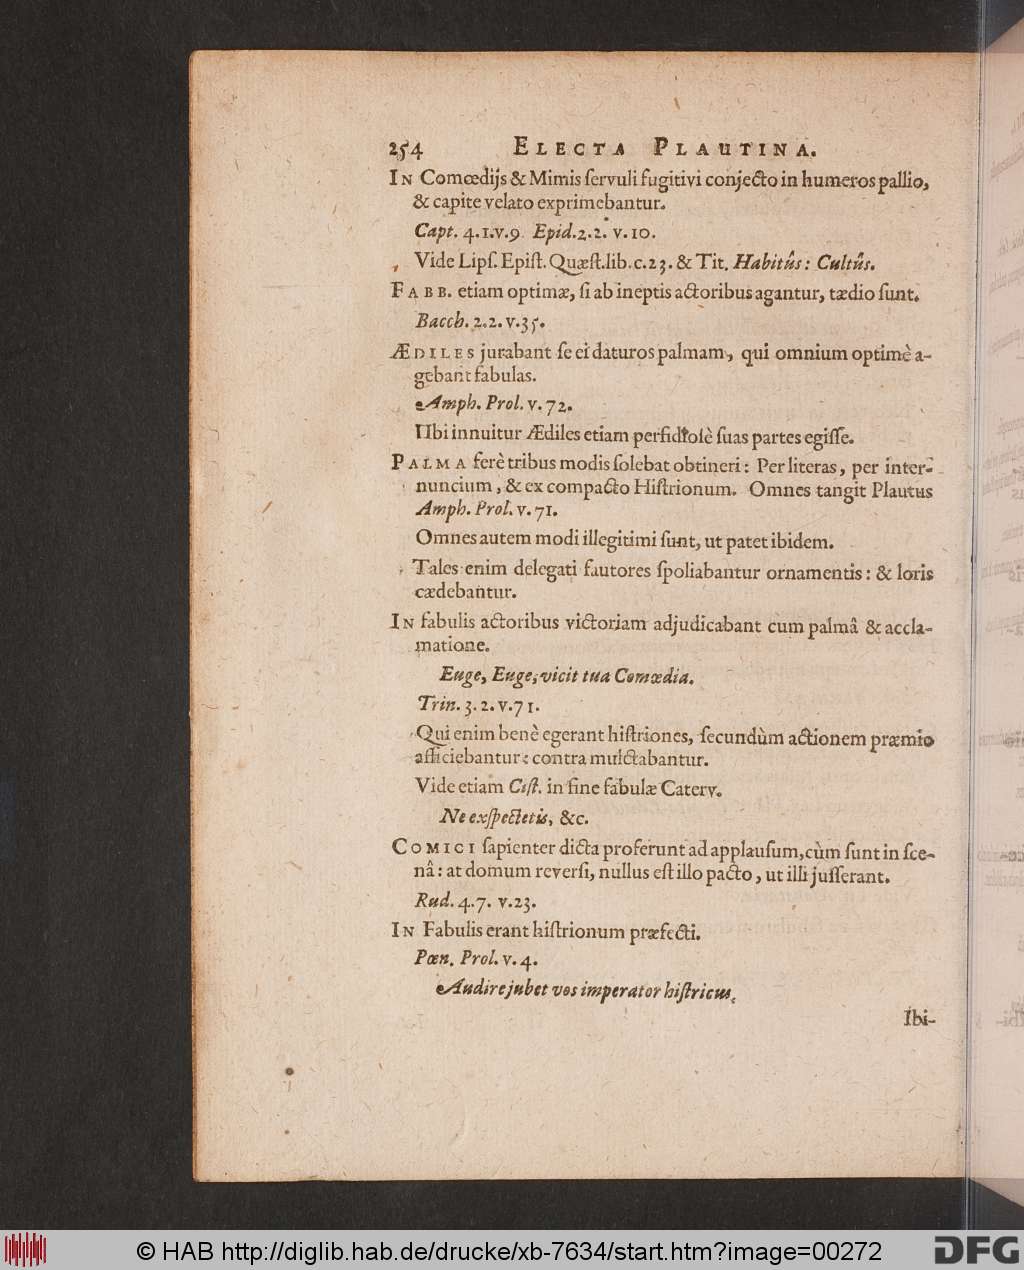 254 ELECTA PLAUTINA.
IN Comœdijs & Mimis ſervuli fugitivi conjecto in humeros pallio,
& capite velato exprimebantur.
Capt. 4.1.v.9. Epid.2.2. v.10.
Vide Lipſ. Epiſt. Quæſt. lib. c.23. & Tit. Habitûs: Cultûs.
FABB. etiam optimæ, ſi ab ineptis actoribus agantur, tædio ſunt.
Bacch. 2.2.v.35.
ÆDILES jurabant ſe ei daturos palmam, qui omnium optimè a-
gebant fabulas.
Amph. Prol. v. 72.
Ubi innuitur Ædiles etiam perfidioſè ſuas partes egiſſe.
PALMA ferè tribus modis ſolebat obtineri: Per literas, per inter-
nuncium, & ex compacto Hiſtrionum. Omnes tangit Plautus
Amph. Prol. v. 71.
Omnes autem modi illegitimi ſunt, ut patet ibidem.
Tales enim delegati fautores ſpoliabantur ornamentis: & loris
cædebantur.
IN fabulis actoribus victoriam adjudicabant cùm palmâ & accla-
matione.
Euge, Euge, vicit tua Comœdia.
Trin. 3. 2. v.71.
Qui enim benè egerant hiſtriones, ſecundùm actionem præmio
afficiebantur: contra mulctabantur.
Vide etiam Ciſt. in fine fabulæ Caterv.
Ne exſpectetis, &c.
COMICI ſapienter dicta proferunt ad applauſum, cùm ſunt in ſce-
nâ: at domum reverſi, nullus eſt illo pacto, ut illi juſſerant.
Rud. 4.7. v.23.
IN Fabulis erant hiſtrionum præfecti.
Pœn. Prol. v. 4.
Audire jubet vos imperator hiſtricus,
Ibi-
© HAB http://diglib.hab.de/drucke/xb-7634/start.htm?image=00272
DFG